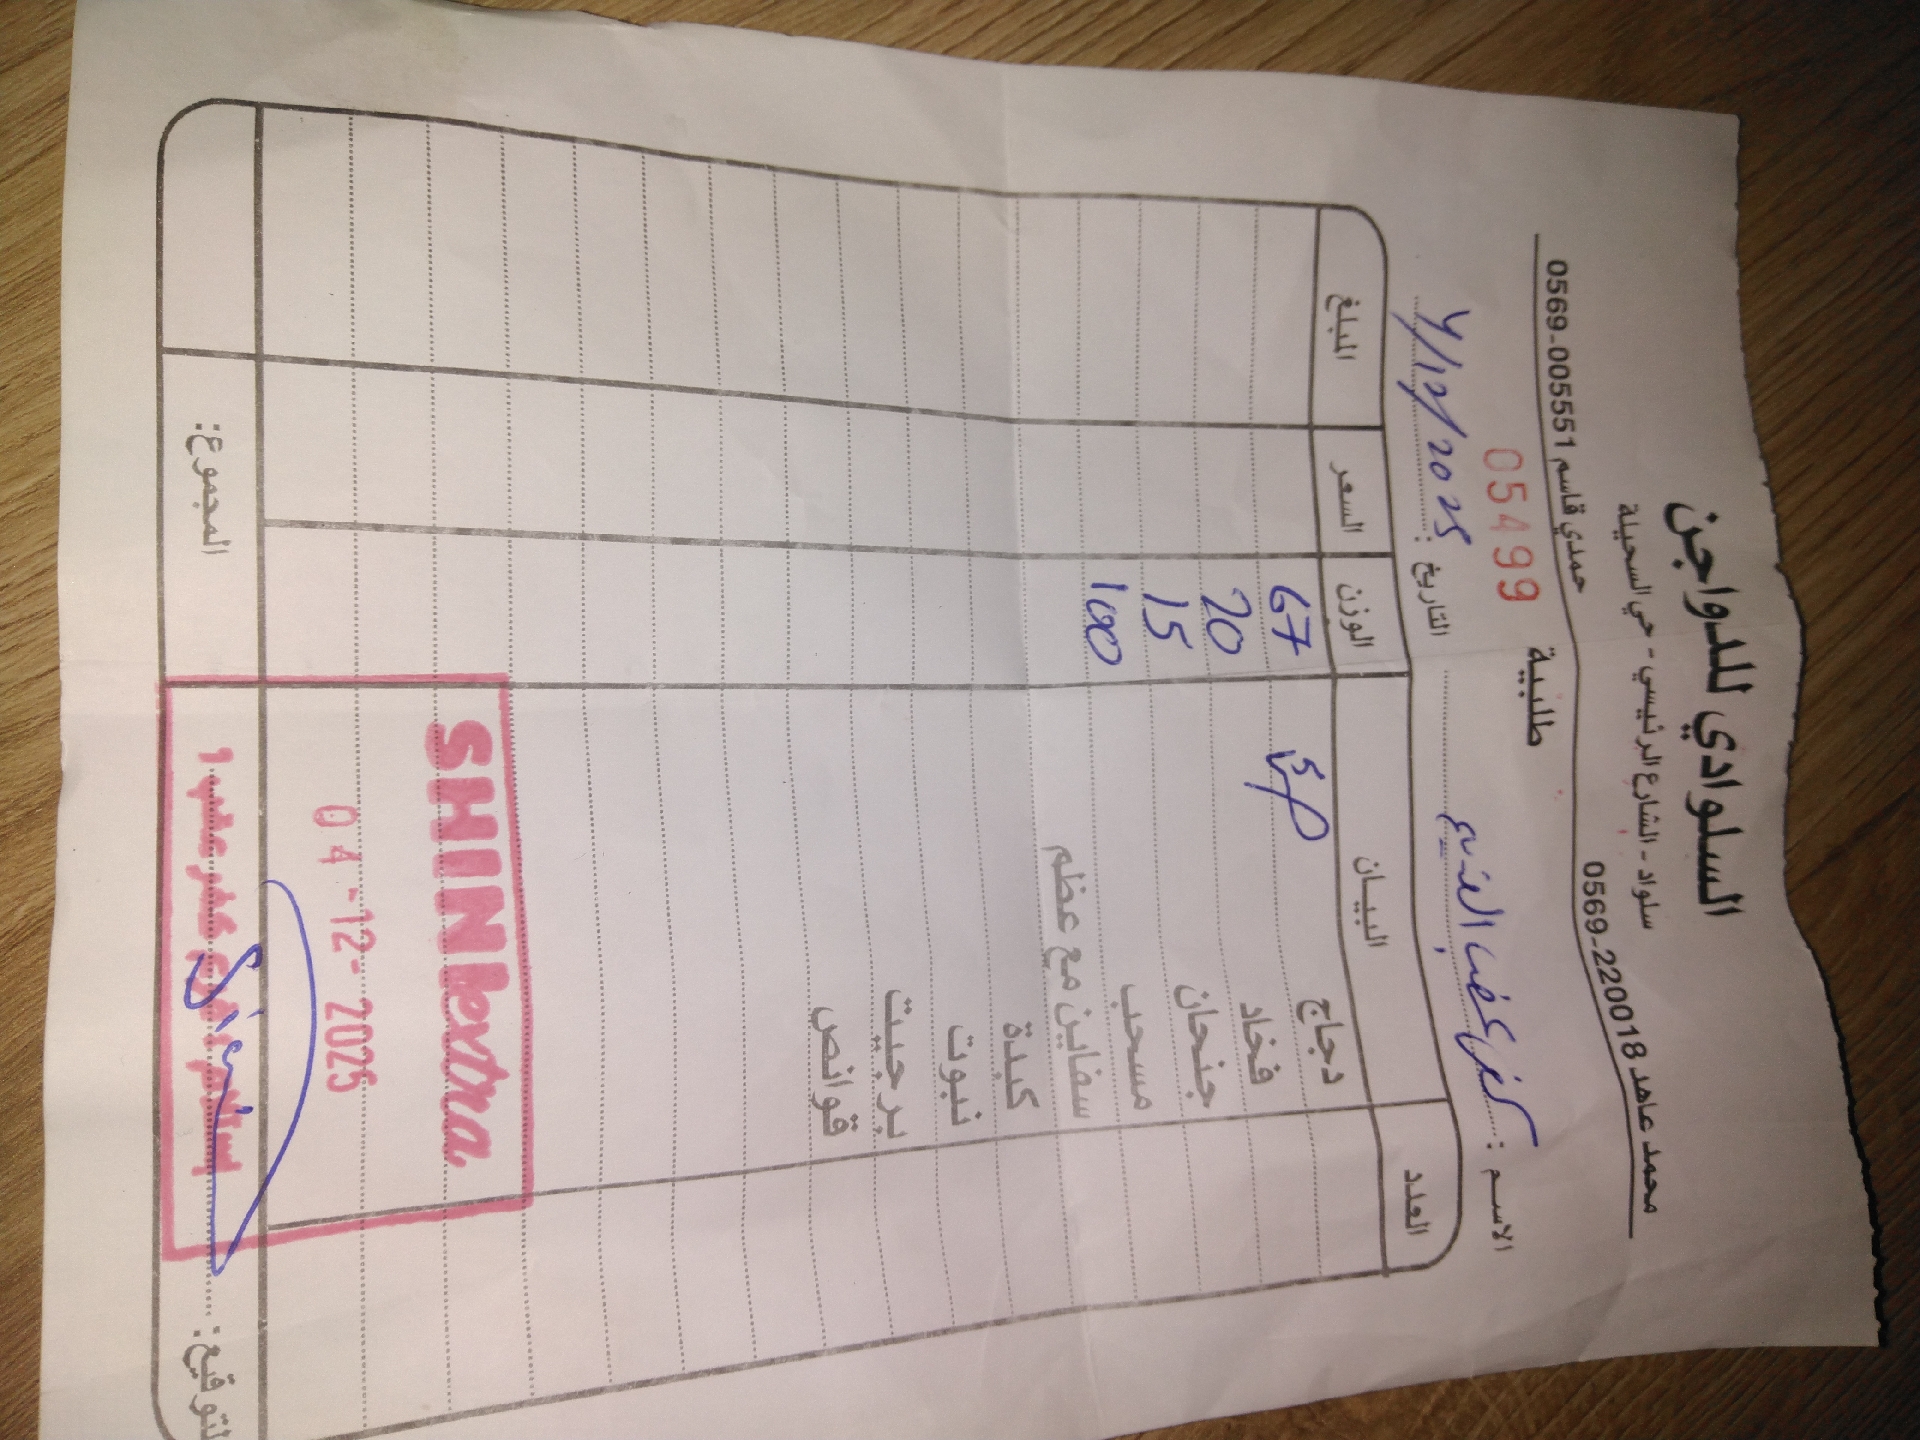 السلوادي للدواجن
سلواد - الشارع الرئيسي - حي السحيلة
محمد عاهد 0569-220018 حمدي قاسم 0569-005551
طلبية 05499
الاسم : كفر عقب
التاريخ : 4/12/2025
العدد البيان الوزن السعر المبلغ
دجاج 67
فخاد 20
جنحان 15
مسحب 100
سفاين مع عظم
كبدة
نبوت
برجيت
قوانص
SHINI extra
04-12-2025
إستلام فرع كفر عقب 1
لتوقيع:
المجموع: